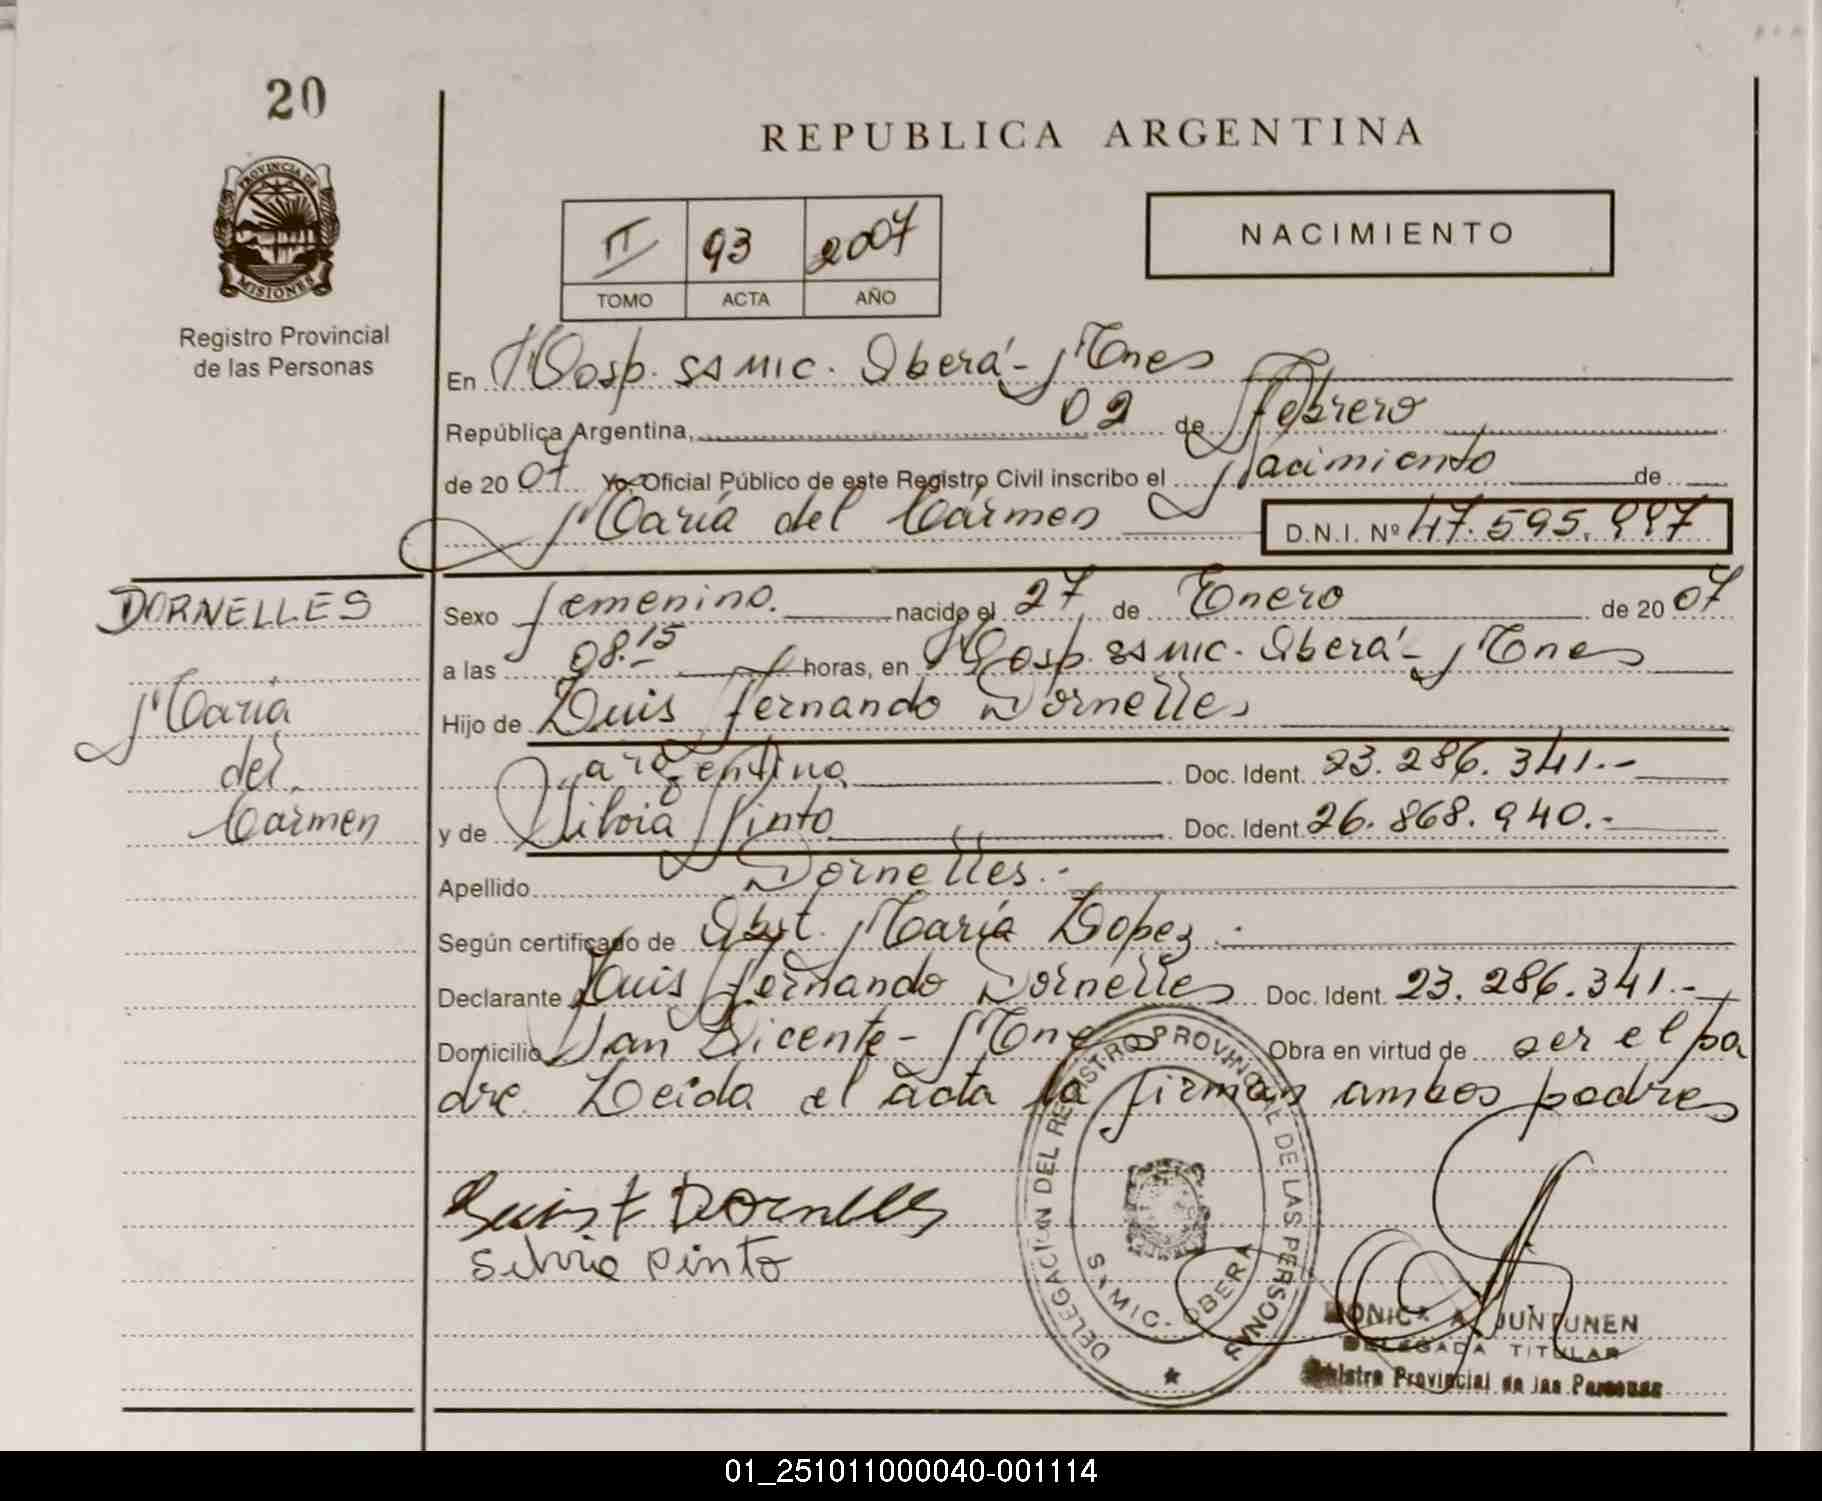 20
REPUBLICA ARGENTINA
PROVINCIA DE
MISIONES
Registro Provincial
de las Personas
NACIMIENTO
II 93 2007
TOMO ACTA AÑO
En Hosp. SAMIC. Oberá - Mnes
República Argentina, 02 de Febrero
de 2007 Yo, Oficial Público de este Registro Civil inscribo el Nacimiento de
María del Carmen D.N.I. Nº 47.595.997
DORNELLES
María
del
Carmen
Sexo femenino. nacido el 27 de Enero de 2007
a las 08.15 horas, en Hosp. SAMIC. Oberá - Mnes
Hijo de Luis Fernando Dornelles
argentino Doc. Ident. 23.286.341.-
y de Silvia Pinto Doc. Ident. 26.868.940.-
Apellido Dornelles.-
Según certificado de Obst. María Lopez.
Declarante Luis Fernando Dornelles Doc. Ident. 23.286.341.-
Domicilio San Vicente - Mnes Obra en virtud de ser el pa
dre. Leida el acta la firman ambos padres
Luis F Dornelles
Silvia Pinto
DELEGACION DEL REGISTRO PROVINCIAL DE LAS PERSONAS
SAMIC. OBERA
MONICA A. JUNTUNEN
DELEGADA TITULAR
Registro Provincial de las Personas
01_251011000040-001114